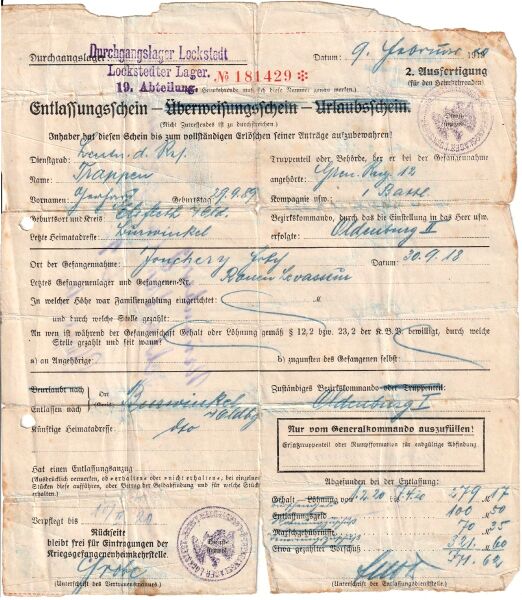 Durchgangslager Durchgangslager Lockstedt
Lockstedter Lager.
19. Abteilung.
№ 181429 ✻
Datum: 9. Februar 19
2. Ausfertigung
(für den Heimkehrenden)
Entlassungsschein — Überweisungsschein — Urlaubsschein.
(Nicht Zutreffendes ist zu durchstreichen.)
Inhaber hat diesen Schein bis zum vollständigen Erlöschen seiner Anträge aufzubewahren!
Dienstgrad: d. Rs.
Truppenteil oder Behörde, der er bei der Gefangennahme
Name: Trappen
angehörte: Gren. Rgt. 12
Vornamen: Geburtstag: 29.9.89
Kompagnie usw.: 1 Batl
Geburtsort und Kreis: Elsfleth
Bezirkskommando, durch das die Einstellung in das Heer usw.
Letzte Heimatadresse: Burwinkel
erfolgte: Oldenburg II
Ort der Gefangennahme: Jonchery Datum: 30.9.18
Letztes Gefangenenlager und Gefangenen-Nr. Rouen Levasseur
In welcher Höhe war Familienzahlung eingerichtet:
und durch welche Stelle gezahlt:
An wen ist während der Gefangenschaft Gehalt oder Löhnung gemäß § 12,2 bzw. 23,2 der K.B.V. bewilligt, durch welche
Stelle gezahlt und seit wann?
a) an Angehörige:
b) zugunsten des Gefangenen selbst:
Beurlaubt nach
Entlassen nach
Ort
Burwinkel
Zuständiges Bezirkskommando oder Truppenteil:
Oldenburg I
Künftige Heimatadresse: dto
Nur vom Generalkommando auszufüllen!
Ersatztruppenteil oder Rumpfformation für endgültige Abfindung
Hat einen Entlassungsanzug
(Ausdrücklich vermerken, ob »erhalten« oder »nicht erhalten«, bei einzelnen
Stücken diese aufführen, oder Betrag der Geldabfindung und für welche Stücke
erhalten.)
Abgefunden bei der Entlassung:
Gehalt — Löhnung von 1.2.20 279 M 17
Entlassungsgeld 100 M 50
Marschgebührnisse 70 M 35
Etwa gezahlter Vorschuß 321 M 60
771. 62
Verpflegt bis
Rückseite
bleibt frei für Eintragungen der
Kriegsgefangenenheimkehrstelle.
(Unterschrift des Vertrauensmannes.)
(Unterschrift der Entlassungsdienststelle.)